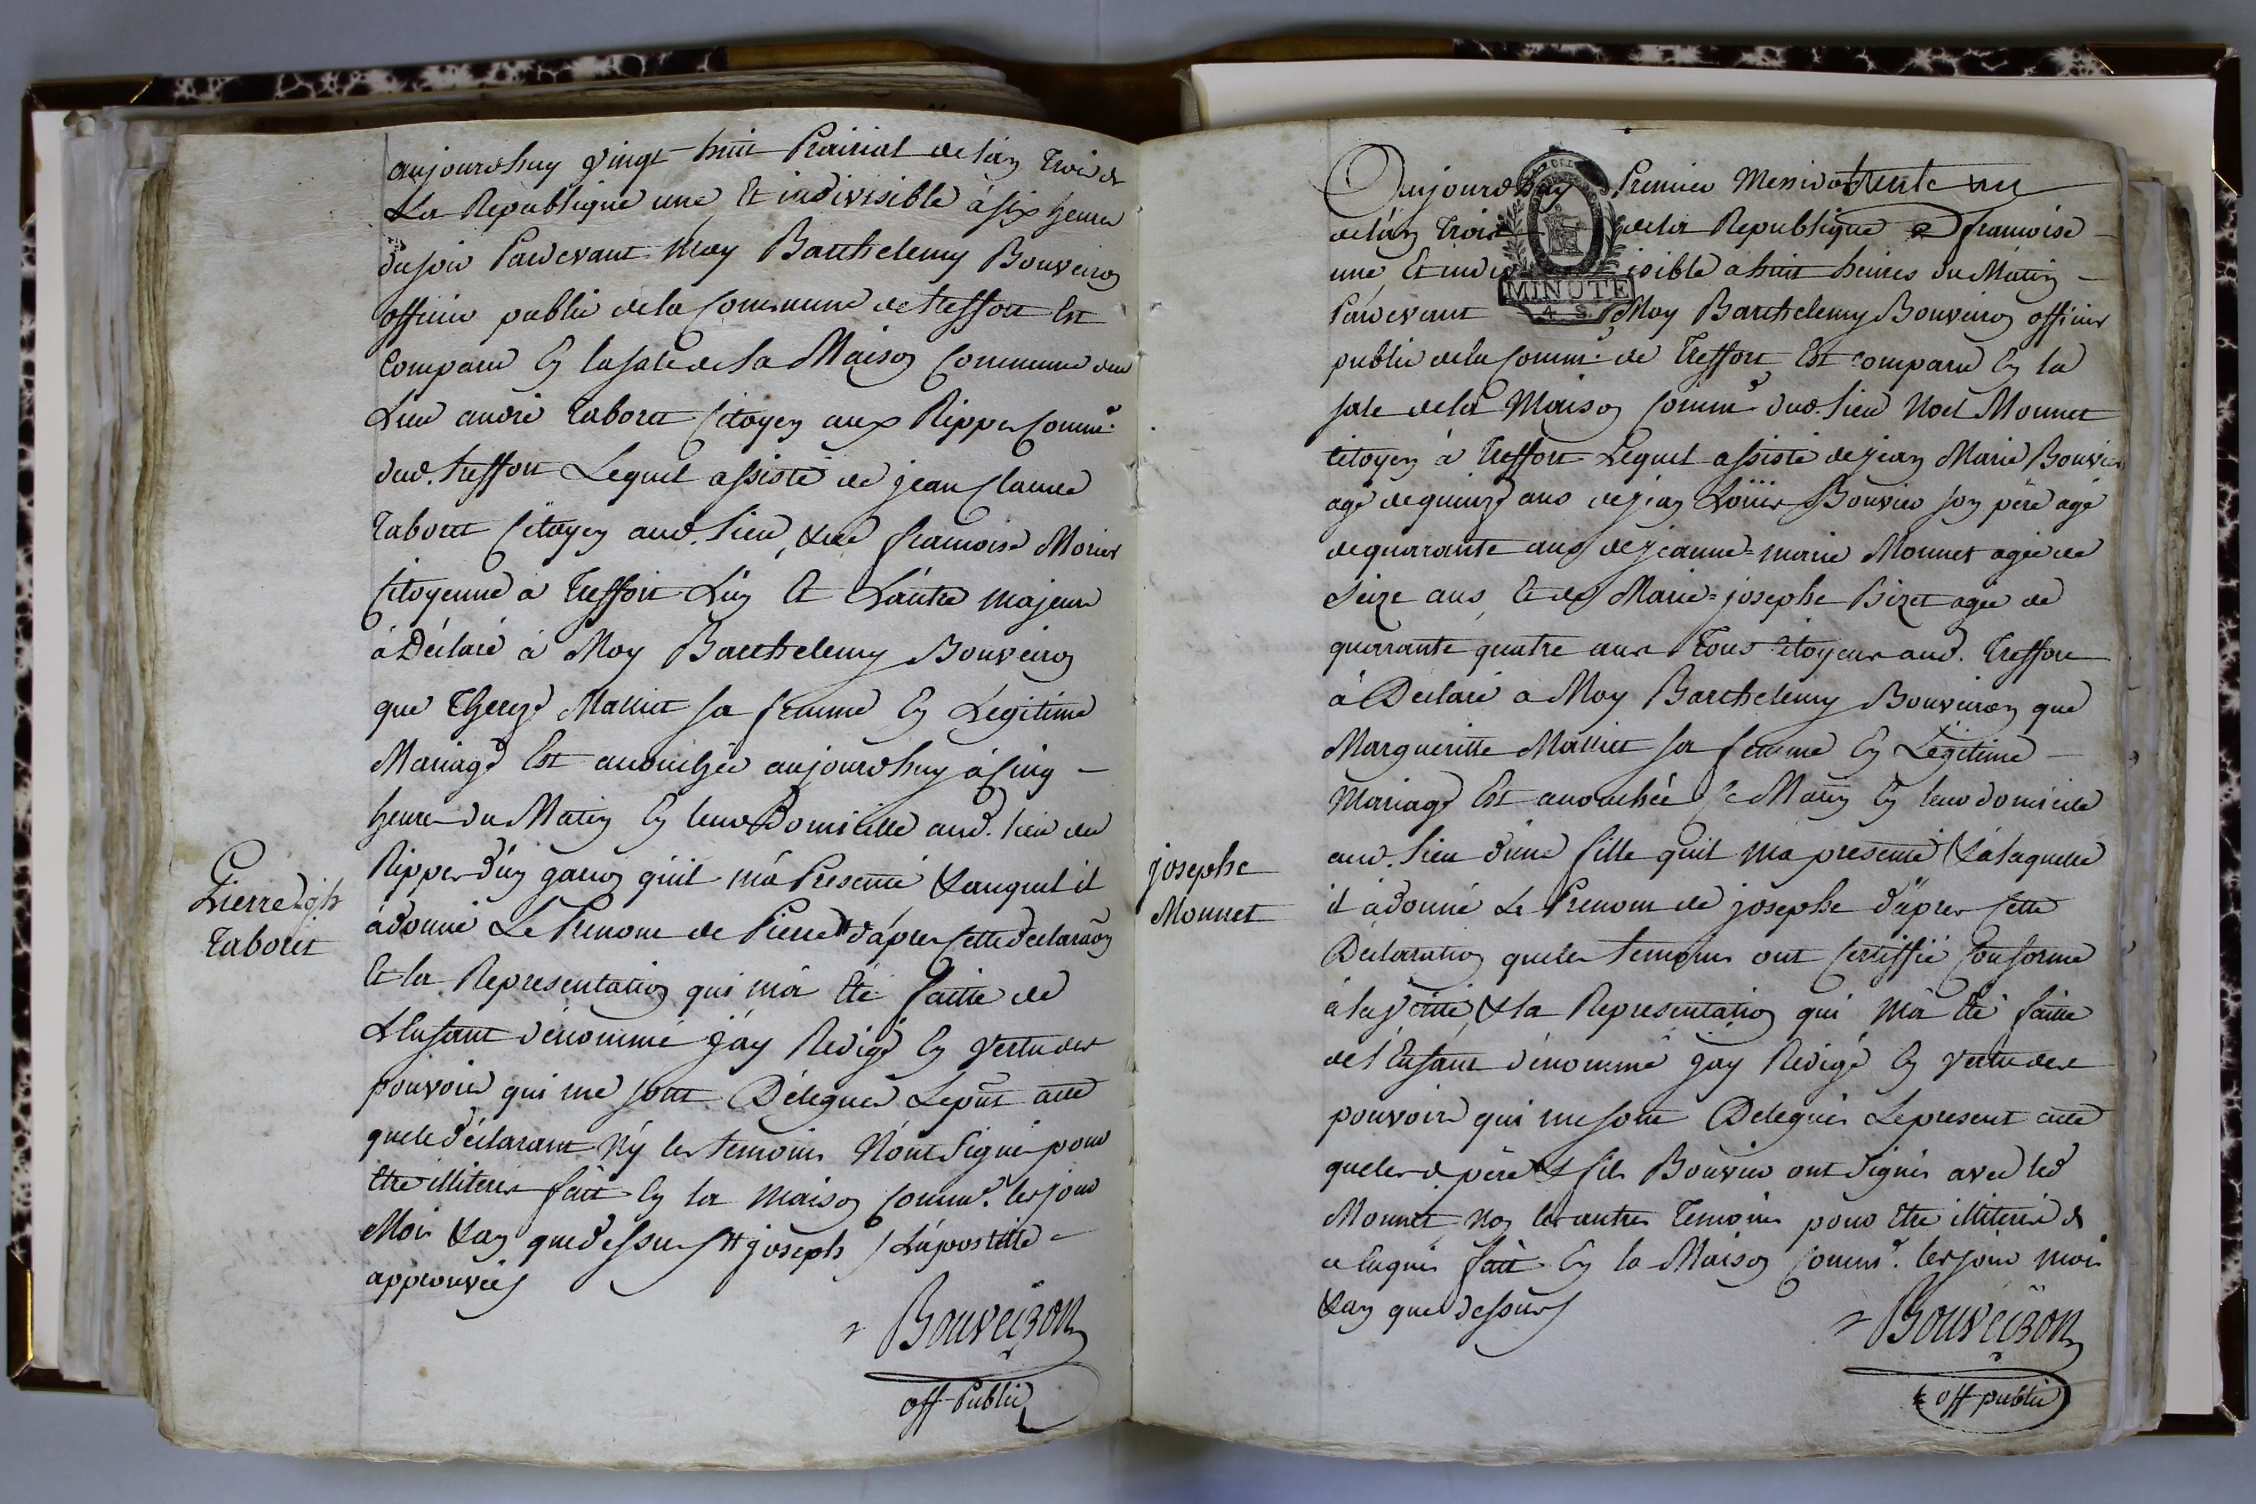 aujourdhuy vingt huit Prairial de lán trois de
La Republique une Et indivisible à six heures
du soir Pardevant Moy Barthelemy Bouveiron
officier public de la Commune de treffort Est
Comparu En la sale de la Maison Commune dud
Lieu andré taboret Citoyen aux Rippes Comm.e
dud. treffort Lequel assisté de jean Claude
taboret Citoyen aud. Lieu, & de francoise Morier
Citoyenne à treffort Lún Et Láutre majeurs
à Déclaré à Moy Barthelemy Bouveiron
que Therezé Massiet sa femme En Légitime
Mariagé Est accouchée aujourdhuy à Cinq
heures du Matin En leur Domicille aud. lieu des
Rippes d'ún garcon qúil má Presenté & auquel il
à donné Le Prenom de Pierre # d'ápres Cette declaraõn
Et la Representation qui má Eté faitte de
L'Enfant dénommé j'áy Redigé En vertu des
pouvoirs qui me sont Délegués Le pñt acte
que le déclarant ny les temoins n'ont Signé pour
Etre illiterés fait En la maison Comm.e les jour
Mois & an que dessus # joseph / L'ápostille
approuvée /
Bouveiron
off Public
Pierre jph
taboret
aujourdhuy Premier Messidor
de lán Trois de la Republique francoise
une Et indivisible a huit heures du Matin
Pardevant Moy Barthelemy Bouveiron officier
public de la Comm.e de Treffort Est comparu En la
sale de la Maison Comm.e dud. lieu Noel Monnet
Citoyen à Treffort Lequel assisté de jean Marie Bouvier
agé de quinze ans de jean Loüis Bouvier son pere agé
de quarante ans de jeanne=marie Monnet agée de
Seize ans, Et de Marie=josephe Bizet agée de
quarante quatre ans Tous citoyens aud. Treffort
à Déclaré a Moy Barthelemy Bouveiron que
Margueritte Massiet sa femme En Légitime
Mariagé Est accouchée Ce Matin En leur domicile
aud. lieu d'úne fille qúil má presenté & à laquelle
il à donné Le Prenom de josephe d'ápres Cette
Déclaration que les temoins ont Certiffié Conforme
à la vérité, & la Representation qui má Eté faitte
de l'Enfant dénommé jáy Redigé En vertu des
pouvoirs qui me sont Delegués Le present acte
que les d. père & fils Bouvier ont Signés avec led
Monnet, non les autres temoins pour Etre illiterés de
ce Enquis fait En la Maison Comm.e les jour mois
& an que dessus /
Bouveiron
off public
josephe
Monnet
MINUTE
4 S.